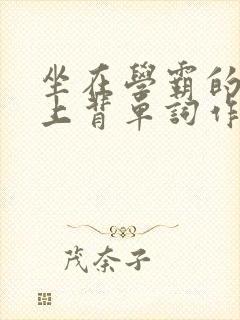 坐在學霸的
上背單詞作
茂奈子